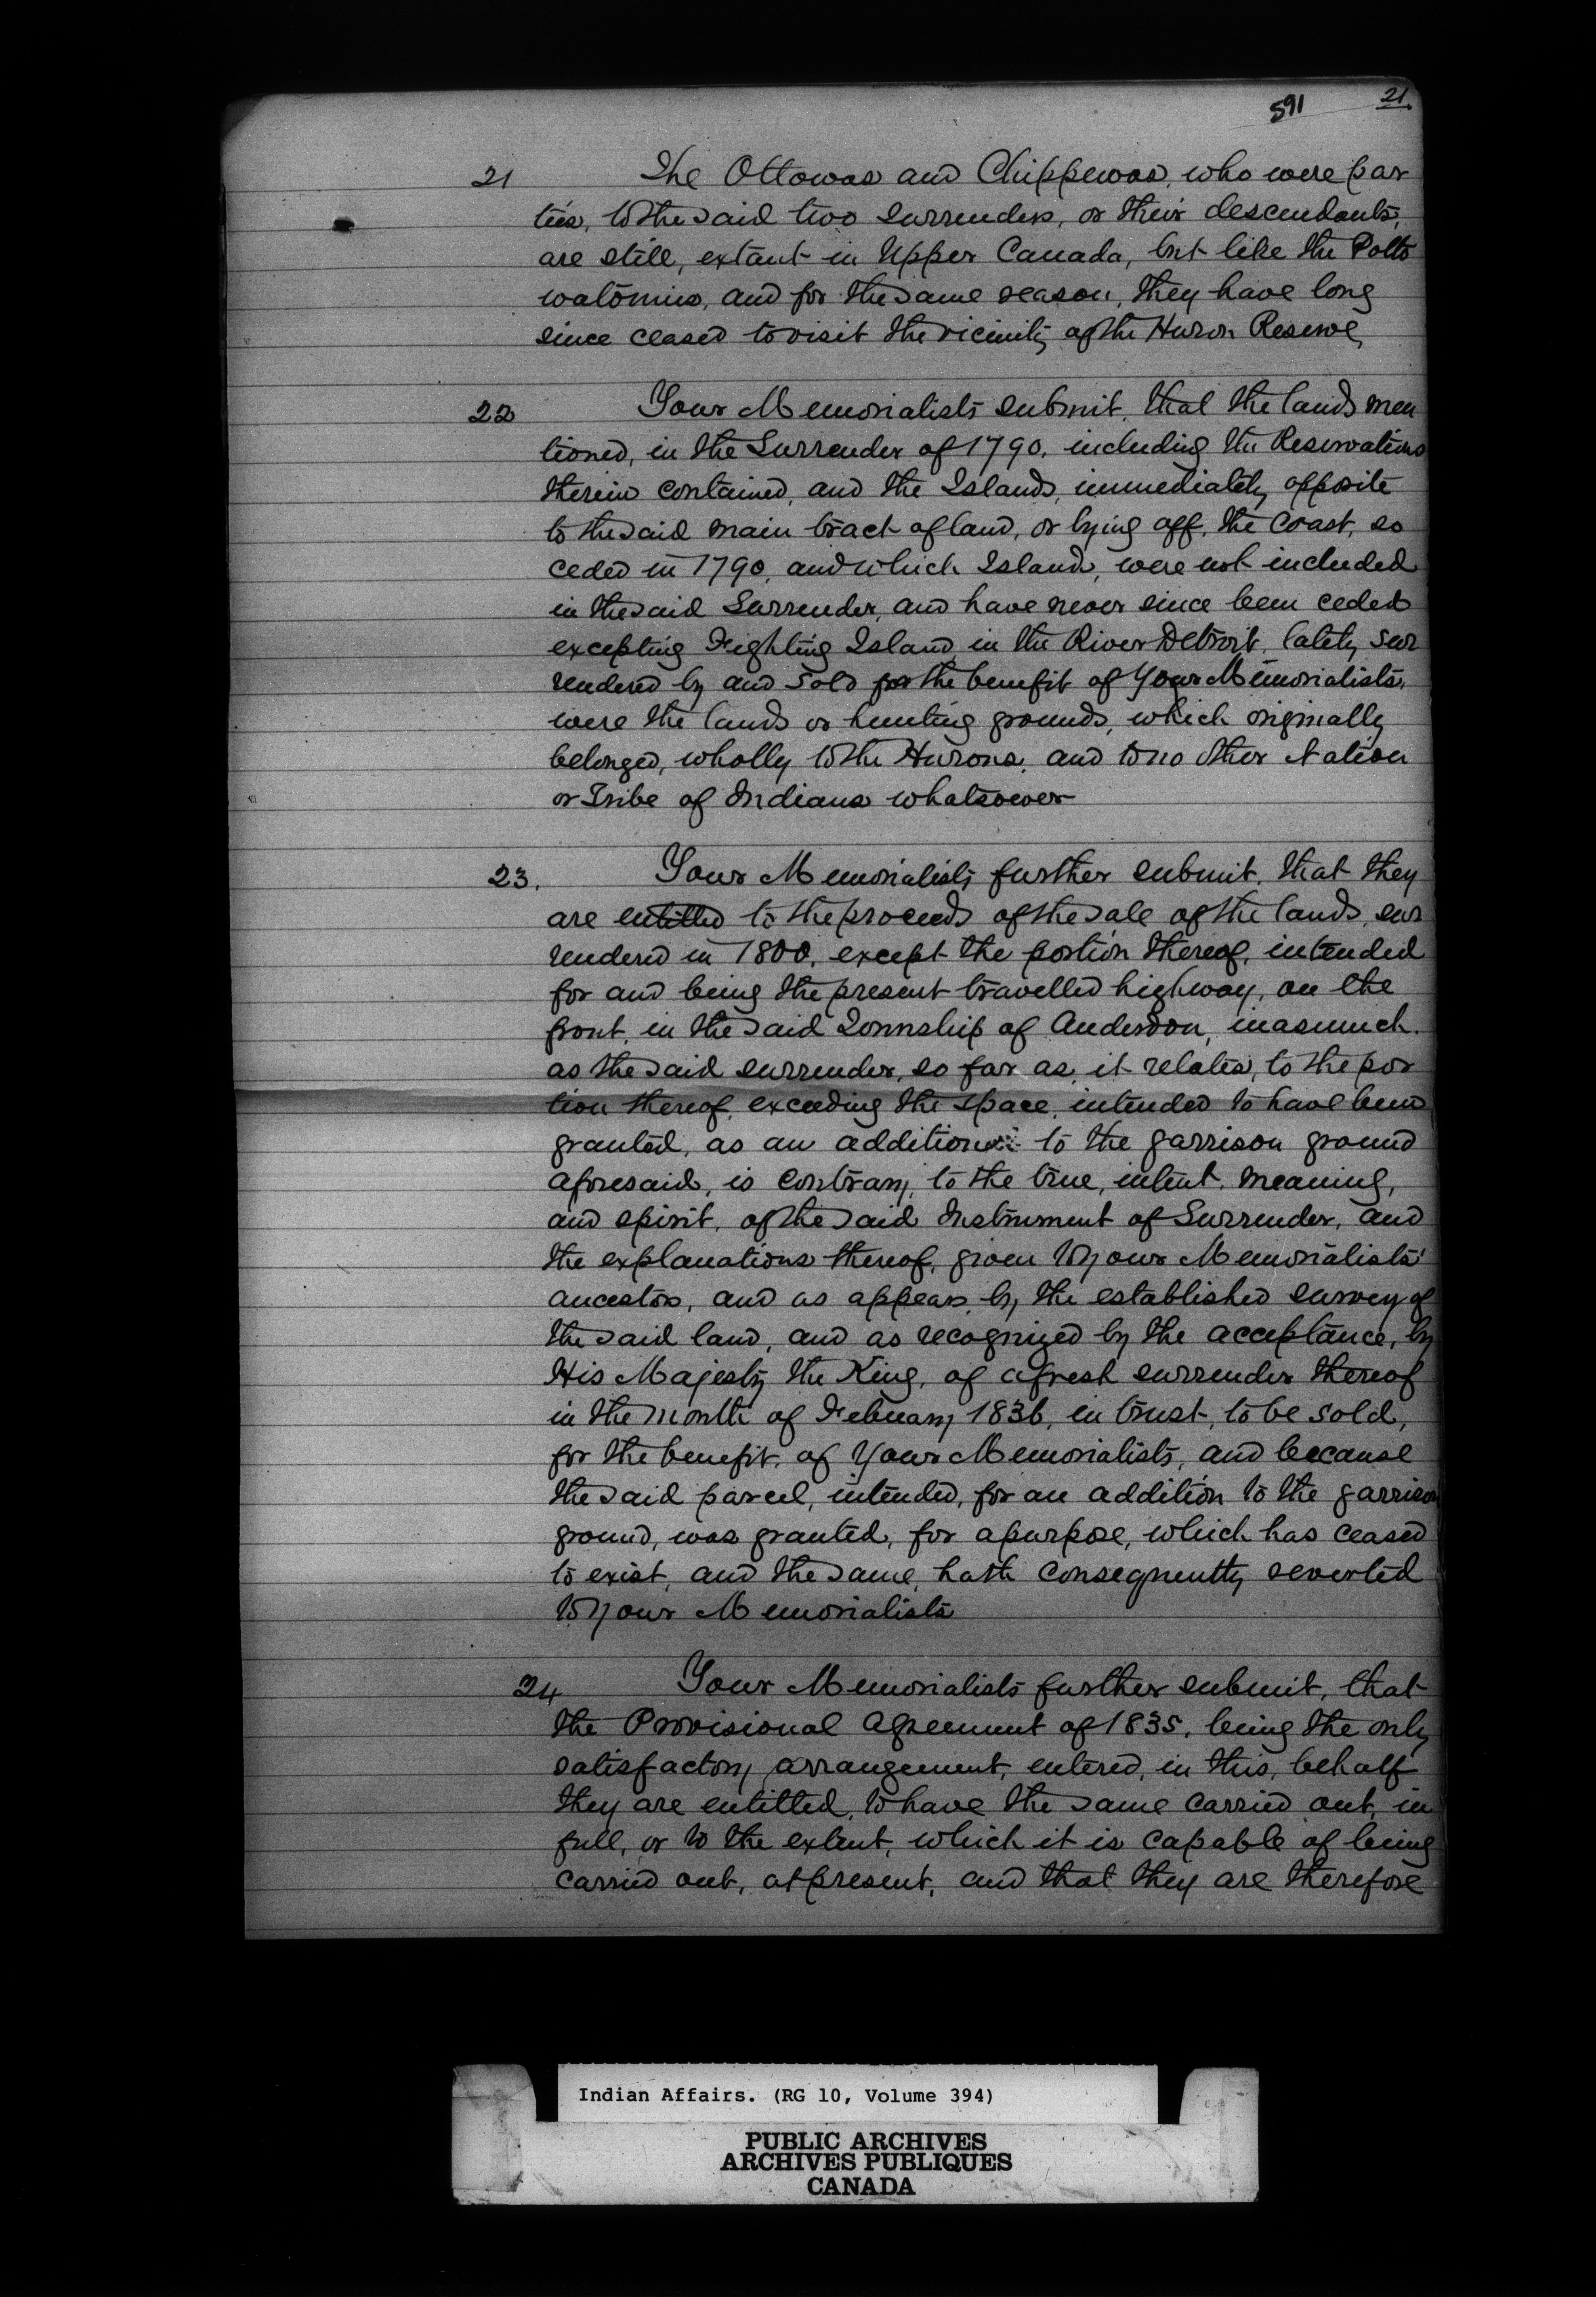 591 21.
21 The Ottowas and Chippewas, who were par
ties, to the said two surrenders, or their descendants,
are still, extant in Upper Canada, but like the Potto
watomies, and for the same reason, they have long
since ceased to visit the vicinity of the Huron Reserve,
22 Your Memorialists submit, that the lands men
tioned, in the Surrender of 1790, including the Reservations
therein contained, and the Islands, immediately opposite
to the said main tract of land, or lying off, the Coast, so
ceded in 1790, and which Islands, were not included
in the said Surrender, and have never since been ceded
excepting Fighting Island in the River Detroit, lately sur
rendered by and sold for the benefit of Your Memorialists,
were the lands or hunting grounds, which originally
belonged, wholly to the Hurons, and to no other Nation
or Tribe of Indians whatsoever
23. Your Memorialists further submit, that they
are entitled to the proceeds of the sale of the lands, sur
rendered in 1800, except the portion thereof, intended
for and being the present travelled highway, on the
front, in the said Township of Anderdon, inasmuch
as the said surrender, so far as, it relates, to the por
tion thereof, exceeding the space, intended to have been
granted, as an addition to the garrison ground
aforesaid, is contrary, to the true, intent, meaning,
and spirit, of the said Instrument of Surrender, and
the explanations thereof, given to your Memorialists'
ancestors, and as appears by, the established survey of
the said land, and as recognized by the acceptance, by
His Majesty the King, of a fresh surrender thereof
in the month of February 1836, in trust, to be sold,
for the benefit, of Your Memorialists, and because
the said parcel, intended, for an addition to the garrison
ground, was granted, for a purpose, which has ceased
to exist, and the same, hath consequently reverted
to Your Memorialists
24 Your Memorialists further submit, that
the Provisional Agreement of 1835, being the only
satisfactory arrangement, entered, in this, behalf
they are entitled, to have the same carried out, in
full, or to the extent, which it is capable of being
carried out, at present, and that they are therefore
Indian Affairs. (RG 10, Volume 394)
PUBLIC ARCHIVES
ARCHIVES PUBLIQUES
CANADA